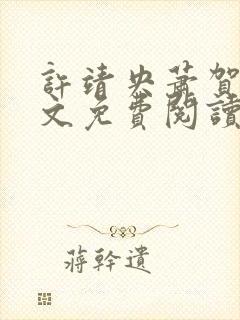 許靖央蕭賀
文免費閱讀
蔣幹遺